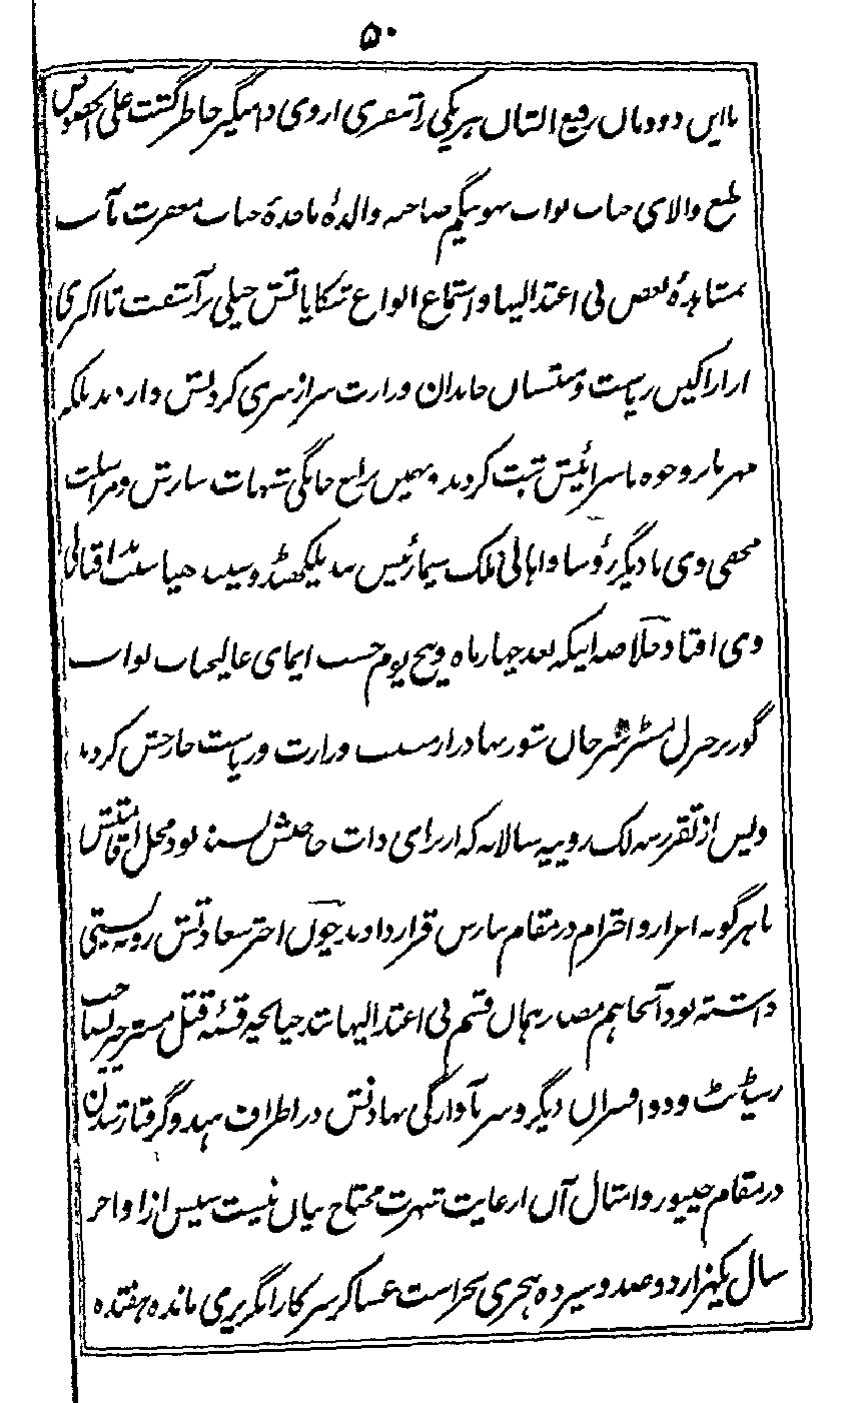 ۵۰
باین دودمان رفیع الشان هر یکی را تنفری از وی دامنگیر خاطر گشت علی الخصوص
طبع والای جناب نواب بهو بیگم صاحبه والدهٔ ماجدهٔ جناب مغفرت مآب
بمشاهدهٔ بعض بی اعتدالیها و استماع انواع شکایاتش خیلی برآشفت تا اکثری
از اراکین ریاست و منتسبان خاندان وزارت سر از سری کردنش دازدند بلکه
مهر بار و وجوه ناسزائیش ثبت کردند همین برین خانگی شبهات سازش و مراسلت
مخفی وی با دیگر رؤسا و اهالی ملک سیما رئیس بندیلکهنڈ و سیندهیا سنت اقبالی
وی افتاد خلاصه اینکه بعد چهار ماه و پنج یوم حسب ایمای عالیجناب نواب
گورنر جنرل مسٹر شرجان شور بهادر از مسند وزارت و ریاست خارجش کردند
و پس از تقرر سه لک روپیه سالانه که از برای ذات خاصش بسنده بود محل اقامتش
با هر گونه اعزاز و احترام در مقام بنارس قرار دادند چون اختر سعادتش رو به پستی
داشته بود آنجا هم مصدر همان قسم بی اعتدالیها شد چنانچه قصهٔ قتل مستر چیری صاحب
رسیڈنٹ و دو افسران دیگر و سر بآوارگی نهادنش در اطراف هند و گرفتار شدن
در مقام جیپور و امثال آن از غایت شهرت محتاج بیان نیست سپس از اواخر
سال یکهزار و دو صد و سیزده هجری بحراست عساکر سرکار انگریزی مانده هفتده